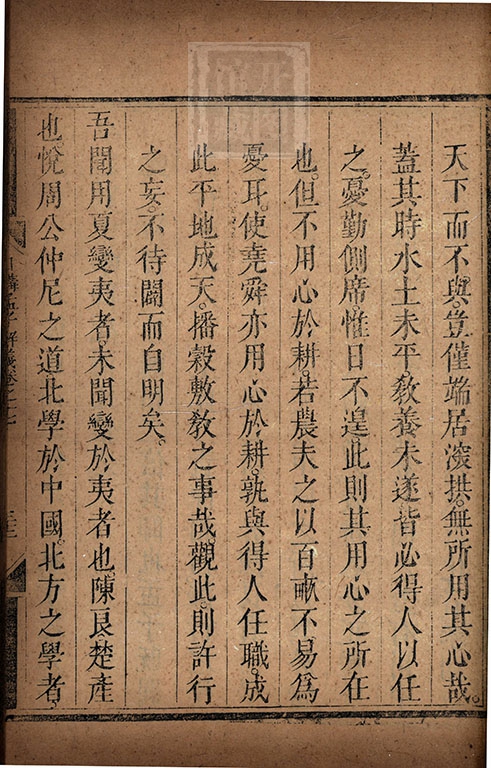 天下而不與。豈僅端居深拱。無所用其心哉。
蓋其時水土未平。敎養未遂。皆必得人以任
之。憂勤側席。惟日不遑。此則其用心之所在
也。但不用心於耕。若農夫之以百畝不易爲
憂耳。使堯舜亦用心於耕。孰與得人任職。成
此平地成天。播穀敷敎之事哉。觀此。則許行
之妄。不待闢而自明矣。
吾聞用夏變夷者。未聞變於夷者也。陳良楚產
也。悅周公仲尼之道。北學於中國。北方之學者。